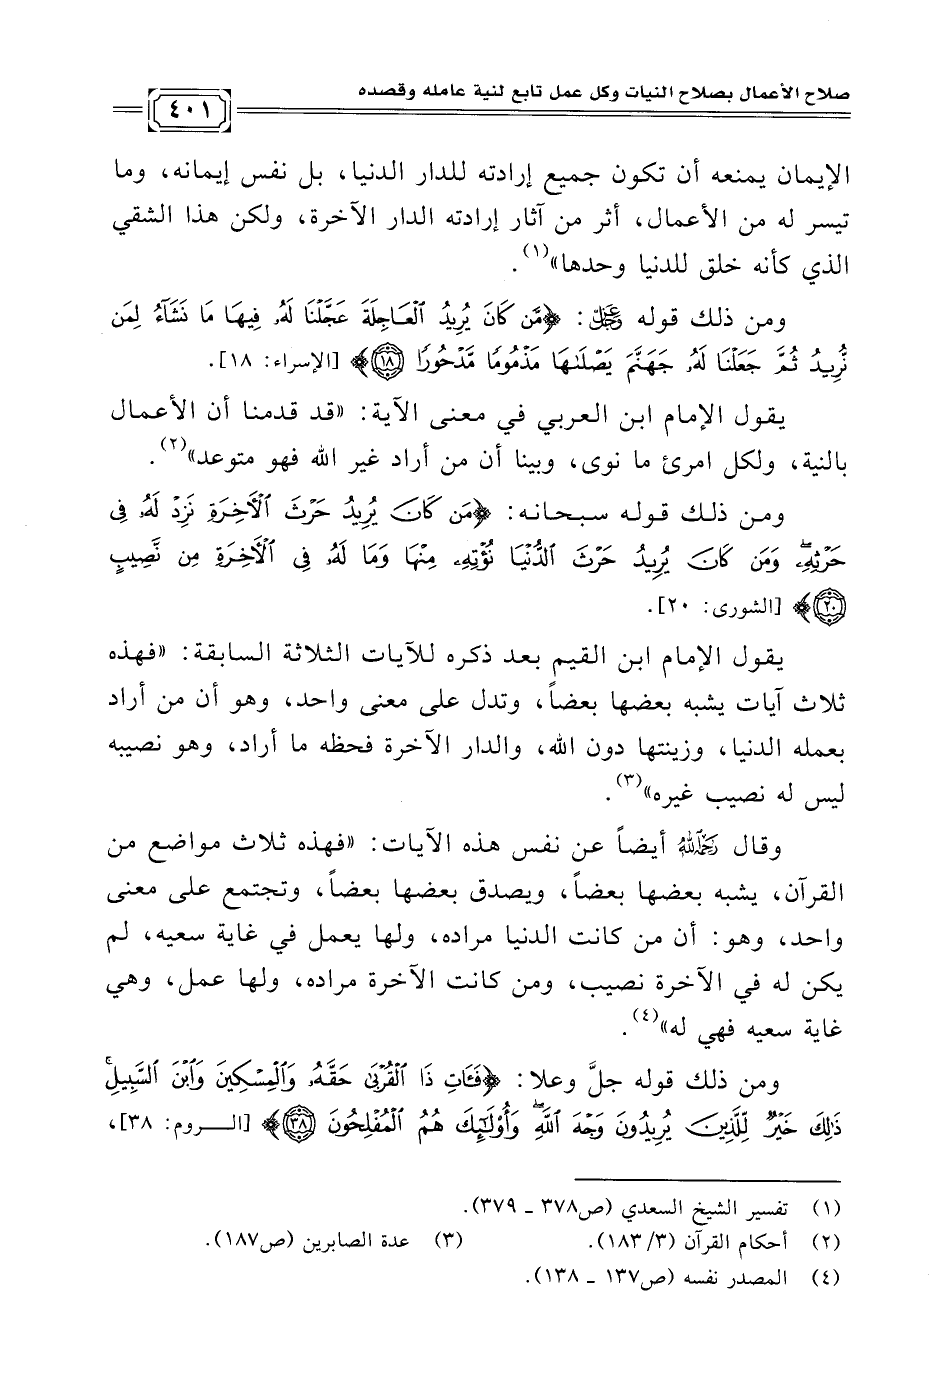 صلاح الأعمال بصلاح النيات وكل عمل تابع لنية عامله وقصده
٤٠١
الإيمان يمنعه أن تكون جميع إرادته للدار الدنيا، بل نفس إيمانه، وما
تيسر له من الأعمال، أثر من آثار إرادته الدار الآخرة، ولكن هذا الشقي
الذي كأنه خلق للدنيا وحدها»(١).
ومن ذلك قوله عز وجل: ﴿مَّن كَانَ يُرِيدُ ٱلْعَاجِلَةَ عَجَّلْنَا لَهُۥ فِيهَا مَا نَشَآءُ لِمَن
نُّرِيدُ ثُمَّ جَعَلْنَا لَهُۥ جَهَنَّمَ يَصْلَىٰهَا مَذْمُومًا مَّدْحُورًا ١٨﴾ [الإسراء: ١٨].
يقول الإمام ابن العربي في معنى الآية: «قد قدمنا أن الأعمال
بالنية، ولكل امرئ ما نوى، وبينا أن من أراد غير الله فهو متوعد»(٢).
ومن ذلك قوله سبحانه: ﴿مَن كَانَ يُرِيدُ حَرْثَ ٱلْآخِرَةِ نَزِدْ لَهُۥ فِى
حَرْثِهِۦ ۖ وَمَن كَانَ يُرِيدُ حَرْثَ ٱلدُّنْيَا نُؤْتِهِۦ مِنْهَا وَمَا لَهُۥ فِى ٱلْآخِرَةِ مِن نَّصِيبٍ
٢٠﴾ [الشورى: ٢٠].
يقول الإمام ابن القيم بعد ذكره للآيات الثلاثة السابقة: «فهذه
ثلاث آيات يشبه بعضها بعضاً، وتدل على معنى واحد، وهو أن من أراد
بعمله الدنيا، وزينتها دون الله، والدار الآخرة فحظه ما أراد، وهو نصيبه
ليس له نصيب غيره»(٣).
وقال رحمه الله أيضاً عن نفس هذه الآيات: «فهذه ثلاث مواضع من
القرآن، يشبه بعضها بعضاً، ويصدق بعضها بعضاً، وتجتمع على معنى
واحد، وهو: أن من كانت الدنيا مراده، ولها يعمل في غاية سعيه، لم
يكن له في الآخرة نصيب، ومن كانت الآخرة مراده، ولها عمل، وهي
غاية سعيه فهي له»(٤).
ومن ذلك قوله جلَّ وعلا: ﴿فَـَٔاتِ ذَا ٱلْقُرْبَىٰ حَقَّهُۥ وَٱلْمِسْكِينَ وَٱبْنَ ٱلسَّبِيلِ ۚ
ذَٰلِكَ خَيْرٌ لِّلَّذِينَ يُرِيدُونَ وَجْهَ ٱللَّهِ ۖ وَأُو۟لَـٰٓئِكَ هُمُ ٱلْمُفْلِحُونَ ٣٨﴾ [الـــروم: ٣٨]،
(١) تفسير الشيخ السعدي (ص٣٧٨ ـ ٣٧٩).
(٢) أحكام القرآن (٣/ ١٨٣). (٣) عدة الصابرين (ص١٨٧).
(٤) المصدر نفسه (ص١٣٧ ـ ١٣٨).